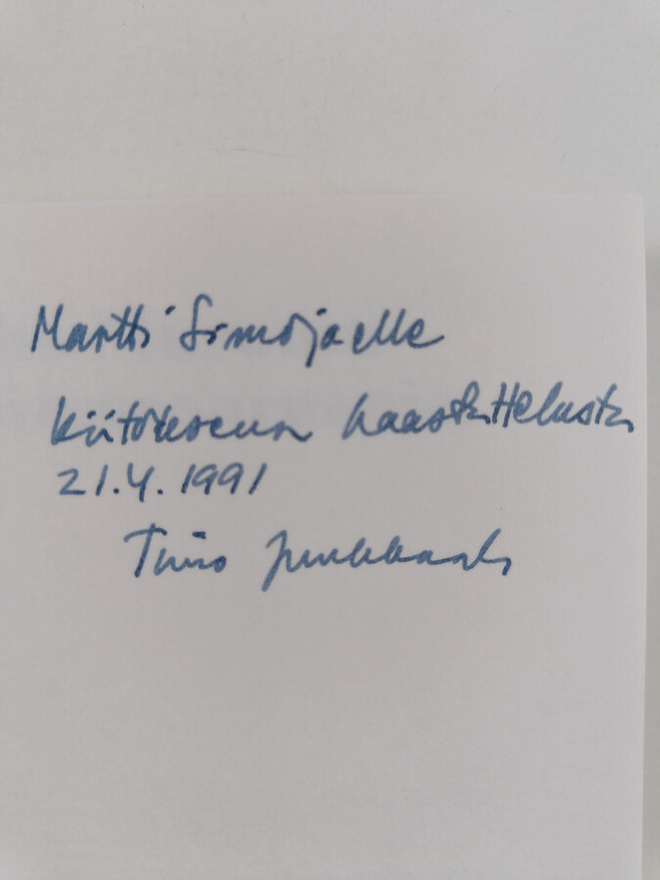 Martti Simojoelle
Kiitoksena haastattelusta
21.4.1991
Timo